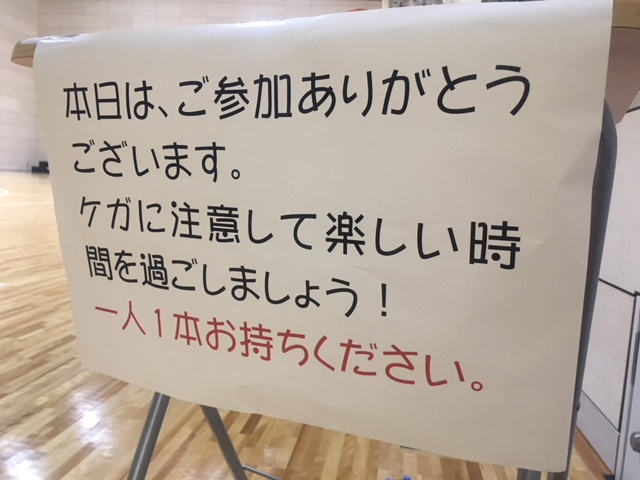 本日は、ご参加ありがとう
ございます。
ケガに注意して楽しい時
間を過ごしましょう！
一人１本お持ちください。